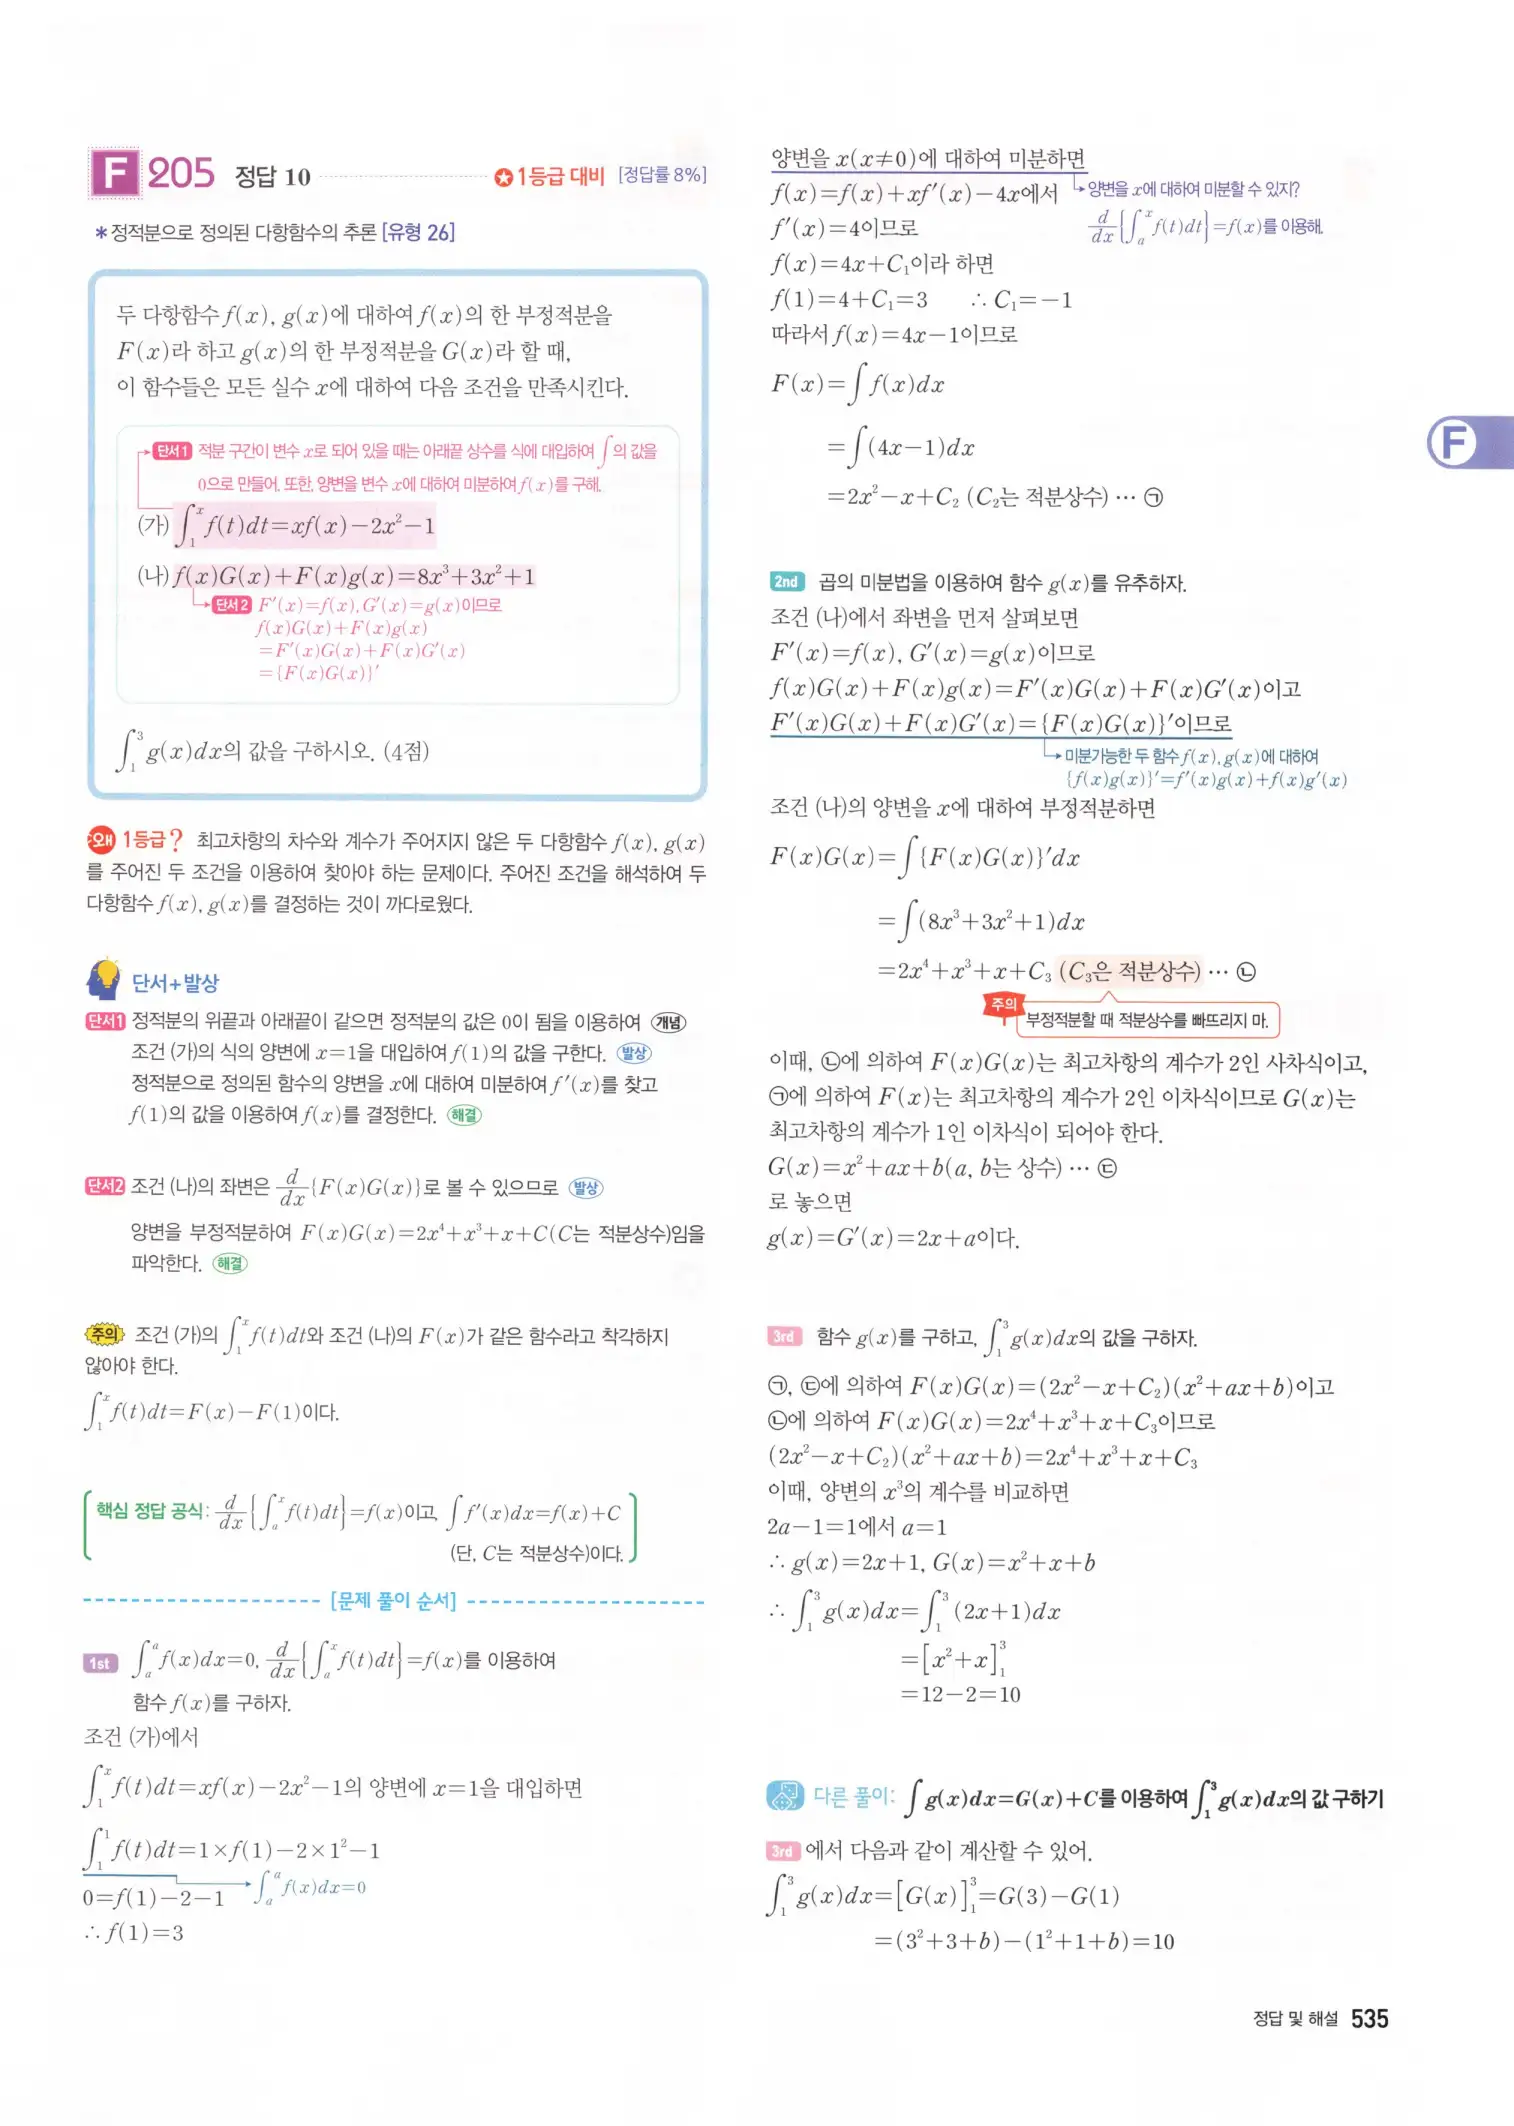 F 205 정답 10 ✪ 1등급 대비 [정답률 8%]
*정적분으로 정의된 다항함수의 추론 [유형 26]
두 다항함수 f(x), g(x)에 대하여 f(x)의 한 부정적분을
F(x)라 하고 g(x)의 한 부정적분을 G(x)라 할 때,
이 함수들은 모든 실수 x에 대하여 다음 조건을 만족시킨다.
단서1 적분 구간이 변수 x로 되어 있을 때는 아래끝 상수를 식에 대입하여 ∫의 값을
0으로 만들어. 또한, 양변을 변수 x에 대하여 미분하여 f(x)를 구해.
(가) ∫₁ˣ f(t)dt=xf(x)-2x²-1
(나) f(x)G(x)+F(x)g(x)=8x³+3x²+1
단서2 F′(x)=f(x), G′(x)=g(x)이므로
f(x)G(x)+F(x)g(x)
=F′(x)G(x)+F(x)G′(x)
={F(x)G(x)}′
∫₁³ g(x)dx의 값을 구하시오. (4점)
왜 1등급? 최고차항의 차수와 계수가 주어지지 않은 두 다항함수 f(x), g(x)
를 주어진 두 조건을 이용하여 찾아야 하는 문제이다. 주어진 조건을 해석하여 두
다항함수 f(x), g(x)를 결정하는 것이 까다로웠다.
단서+발상
단서1 정적분의 위끝과 아래끝이 같으면 정적분의 값은 0이 됨을 이용하여 (개념)
조건 (가)의 식의 양변에 x=1을 대입하여 f(1)의 값을 구한다. (발상)
정적분으로 정의된 함수의 양변을 x에 대하여 미분하여 f′(x)를 찾고
f(1)의 값을 이용하여 f(x)를 결정한다. (해결)
단서2 조건 (나)의 좌변은 d/dx{F(x)G(x)}로 볼 수 있으므로 (발상)
양변을 부정적분하여 F(x)G(x)=2x⁴+x³+x+C(C는 적분상수)임을
파악한다. (해결)
주의 조건 (가)의 ∫₁ˣ f(t)dt와 조건 (나)의 F(x)가 같은 함수라고 착각하지
않아야 한다.
∫₁ˣ f(t)dt=F(x)-F(1)이다.
핵심 정답 공식: d/dx{∫ₐˣ f(t)dt}=f(x)이고, ∫f′(x)dx=f(x)+C
(단, C는 적분상수)이다.
[문제 풀이 순서]
1st ∫ₐᵃ f(x)dx=0, d/dx{∫ₐˣ f(t)dt}=f(x)를 이용하여
함수 f(x)를 구하자.
조건 (가)에서
∫₁ˣ f(t)dt=xf(x)-2x²-1의 양변에 x=1을 대입하면
∫₁¹ f(t)dt=1×f(1)-2×1²-1
0=f(1)-2-1 ∫ₐᵃ f(x)dx=0
∴ f(1)=3
양변을 x(x≠0)에 대하여 미분하면
f(x)=f(x)+xf′(x)-4x에서 양변을 x에 대하여 미분할 수 있지?
f′(x)=4이므로 d/dx{∫ₐˣ f(t)dt}=f(x)를 이용해.
f(x)=4x+C₁이라 하면
f(1)=4+C₁=3 ∴ C₁=-1
따라서 f(x)=4x-1이므로
F(x)=∫f(x)dx
=∫(4x-1)dx
=2x²-x+C₂ (C₂는 적분상수) ⋯ ㉠
2nd 곱의 미분법을 이용하여 함수 g(x)를 유추하자.
조건 (나)에서 좌변을 먼저 살펴보면
F′(x)=f(x), G′(x)=g(x)이므로
f(x)G(x)+F(x)g(x)=F′(x)G(x)+F(x)G′(x)이고
F′(x)G(x)+F(x)G′(x)={F(x)G(x)}′이므로
미분가능한 두 함수 f(x), g(x)에 대하여
{f(x)g(x)}′=f′(x)g(x)+f(x)g′(x)
조건 (나)의 양변을 x에 대하여 부정적분하면
F(x)G(x)=∫{F(x)G(x)}′dx
=∫(8x³+3x²+1)dx
=2x⁴+x³+x+C₃ (C₃은 적분상수) ⋯ ㉡
주의 부정적분할 때 적분상수를 빠뜨리지 마.
이때, ㉡에 의하여 F(x)G(x)는 최고차항의 계수가 2인 사차식이고,
㉠에 의하여 F(x)는 최고차항의 계수가 2인 이차식이므로 G(x)는
최고차항의 계수가 1인 이차식이 되어야 한다.
G(x)=x²+ax+b(a, b는 상수) ⋯ ㉢
로 놓으면
g(x)=G′(x)=2x+a이다.
3rd 함수 g(x)를 구하고, ∫₁³ g(x)dx의 값을 구하자.
㉠, ㉢에 의하여 F(x)G(x)=(2x²-x+C₂)(x²+ax+b)이고
㉡에 의하여 F(x)G(x)=2x⁴+x³+x+C₃이므로
(2x²-x+C₂)(x²+ax+b)=2x⁴+x³+x+C₃
이때, 양변의 x³의 계수를 비교하면
2a-1=1에서 a=1
∴ g(x)=2x+1, G(x)=x²+x+b
∴ ∫₁³ g(x)dx=∫₁³ (2x+1)dx
=[x²+x]₁³
=12-2=10
다른 풀이: ∫g(x)dx=G(x)+C를 이용하여 ∫₁³ g(x)dx의 값 구하기
3rd 에서 다음과 같이 계산할 수 있어.
∫₁³ g(x)dx=[G(x)]₁³=G(3)-G(1)
=(3²+3+b)-(1²+1+b)=10
F
정답 및 해설 535